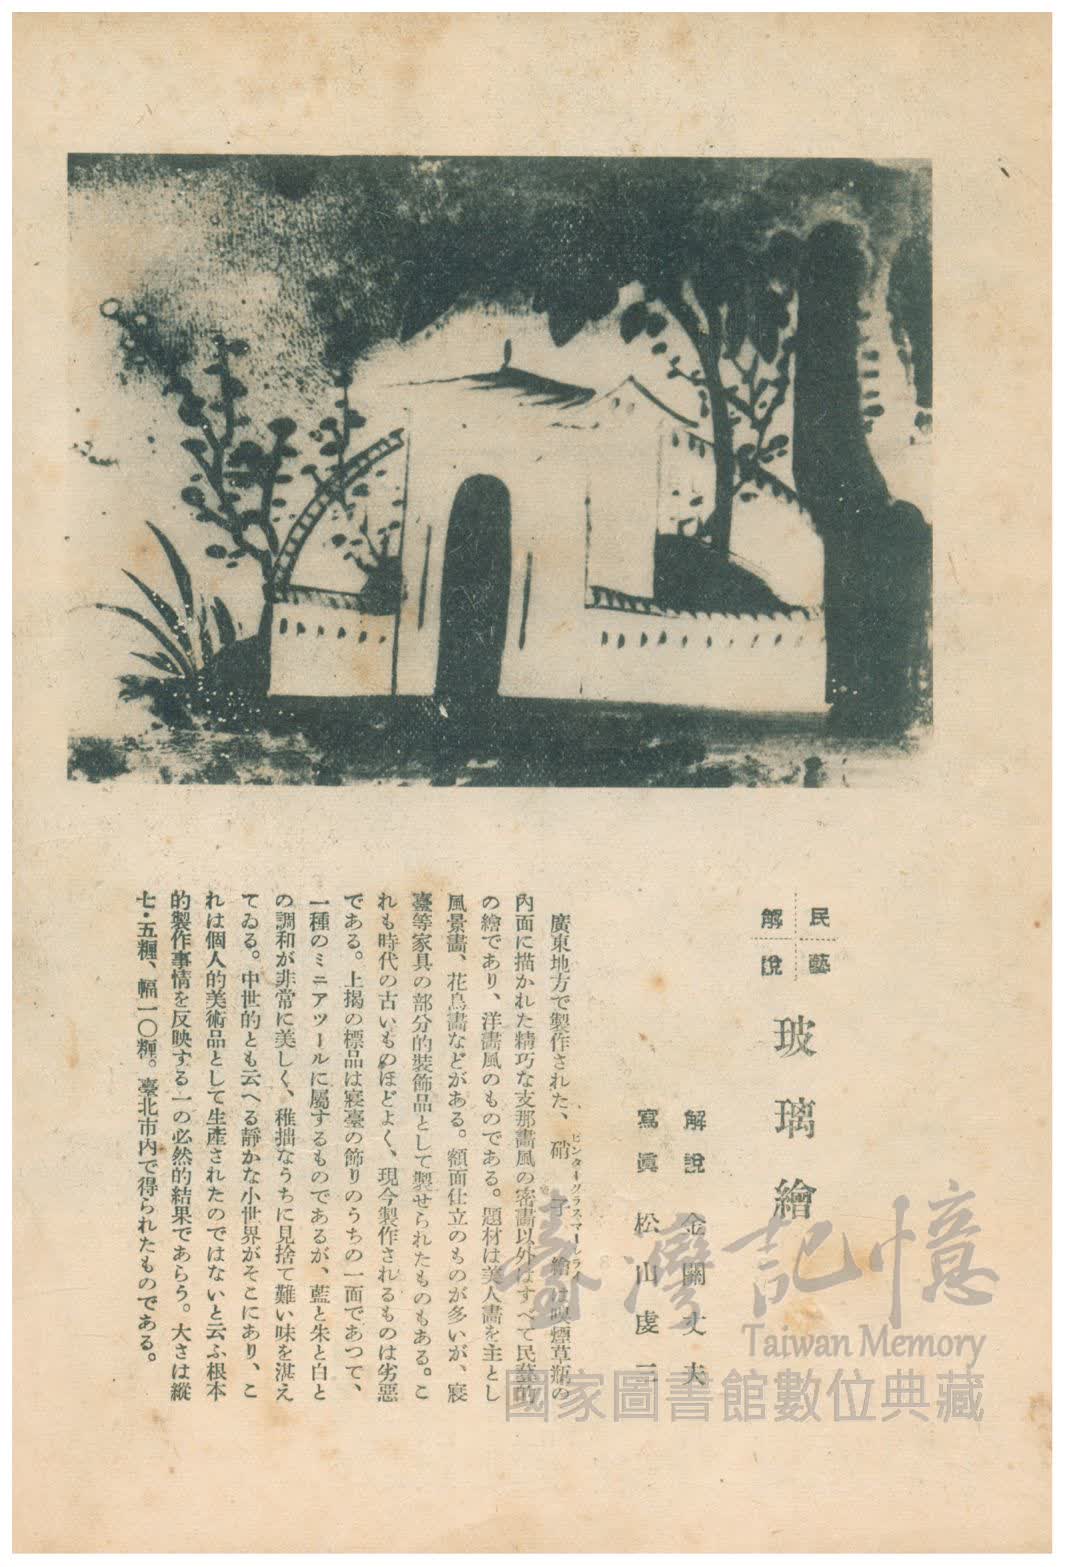 民藝
解說
玻璃繪
解說 金關丈夫
寫眞 松山虔三
廣東地方で製作された、硝子繪は喫煙草瓶の
內面に描かれた精巧な支那畫風の密畫以外はすべて民藝的
の繪であり、洋畫風のものである。題材は美人畫を主とし
風景畫、花鳥畫などがある。額面仕立のものが多いが、寢
臺等家具の部分的裝飾品として製せられたものもある。こ
れも時代の古いものほどよく、現今製作されるものは劣惡
である。上揭の標品は寢臺の飾りのうちの一面であつて、
一種のミニアツールに屬するものであるが、藍と朱と白と
の調和が非常に美しく、稚拙なうちに見捨て難い味を湛え
てゐる。中世的とも云へる靜かな小世界がそこにあり、こ
れは個人的美術品として生產されたのではないと云ふ根本
的製作事情を反映する一の必然的結果であらう。大さは縱
七・五糎、幅一〇糎。臺北市內で得られたものである。
臺灣記憶
Taiwan Memory
國家圖書館數位典藏